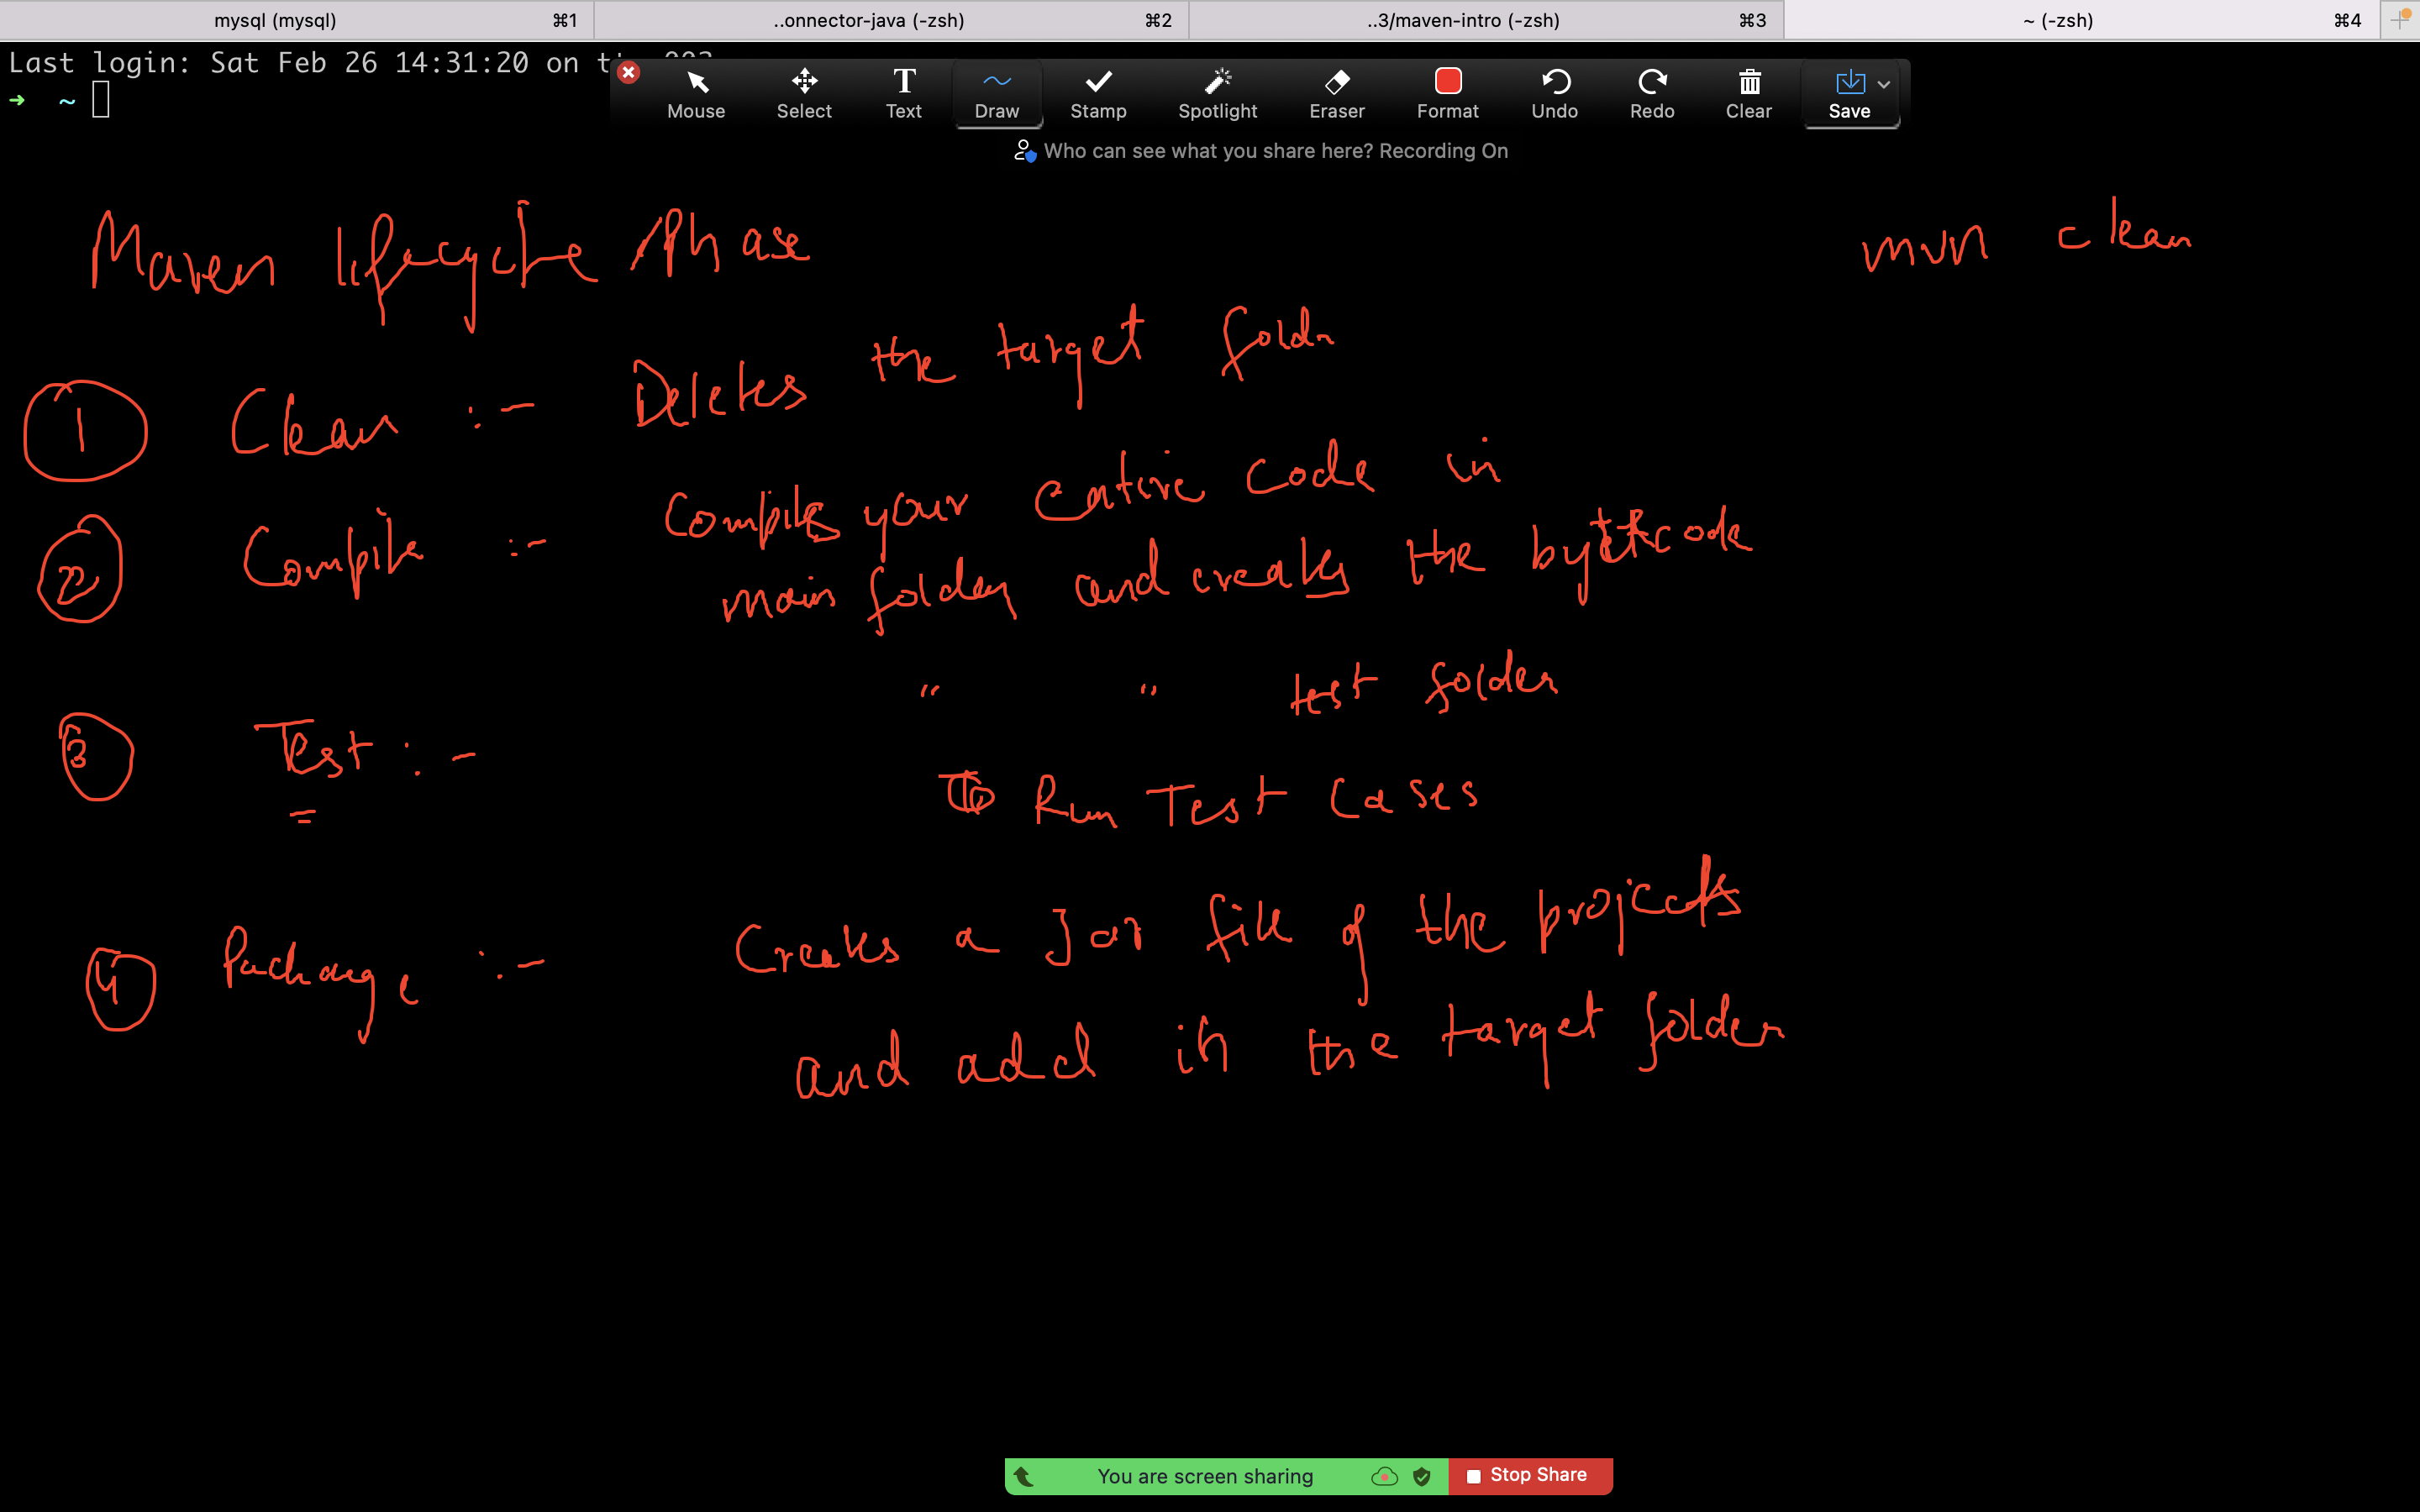 mysql (mysql) ⌘1 ..onnector-java (-zsh) ⌘2 ..3/maven-intro (-zsh) ⌘3 ~ (-zsh) ⌘4
Last login: Sat Feb 26 14:31:20 on
➜ ~
Mouse Select Text Draw Stamp Spotlight Eraser Format Undo Redo Clear Save
Who can see what you share here? Recording On
Maven lifecycle Phase
mvn clean
1 Clean :- Deletes the target folder
2 Compile :- Compiles your entire code in
main folder and creates the bytecode
" " test folder
3 Test :-
To Run Test Cases
4 Package :- Creates a Jar file of the projects
and add in the target folder
You are screen sharing Stop Share